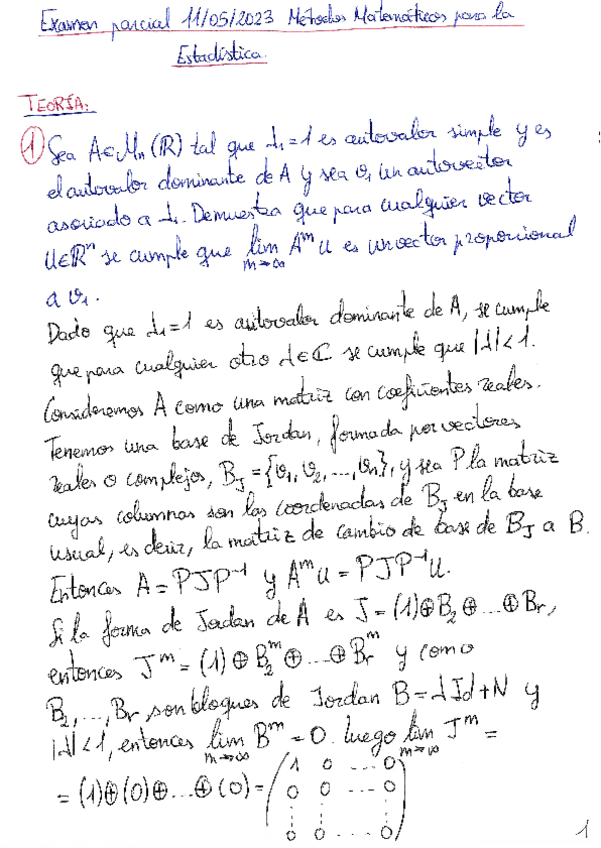 Examen parcial 11/05/2023 Métodos Matemáticos para la
Estadística.
TEORÍA:
① Sea A∈Mn(ℝ) tal que λ₁=1 es autovalor simple y es
el autovalor dominante de A y sea v₁ un autovector
asociado a λ₁. Demuestra que para cualquier vector
u∈ℝⁿ se cumple que lim m→∞ Aᵐu es un vector proporcional
a v₁.
Dado que λ₁=1 es autovalor dominante de A, se cumple
que para cualquier otro λ∈ℂ se cumple que |λ|<1.
Consideremos A como una matriz con coeficientes reales.
Tenemos una base de Jordan, formada por vectores
reales o complejos, B_J={v₁,v₂,...,vn}, y sea P la matriz
cuyas columnas son las coordenadas de B_J en la base
usual, es decir, la matriz de cambio de base de B_J a B.
Entonces A=PJP⁻¹ y Aᵐu=PJP⁻¹u.
Si la forma de Jordan de A es J=(1)⊕B₂⊕...⊕Br,
entonces Jᵐ=(1)⊕B₂ᵐ⊕...⊕Brᵐ y como
B₂,...,Br, son bloques de Jordan B=λId+N y
|λ|<1, entonces lim m→∞ Bᵐ=0. Luego lim m→∞ Jᵐ=
=(1)⊕(0)⊕...⊕(0)=
1 0 ... 0
0 0 ... 0
⋮ ⋮ ⋮
0 0 ... 0
1